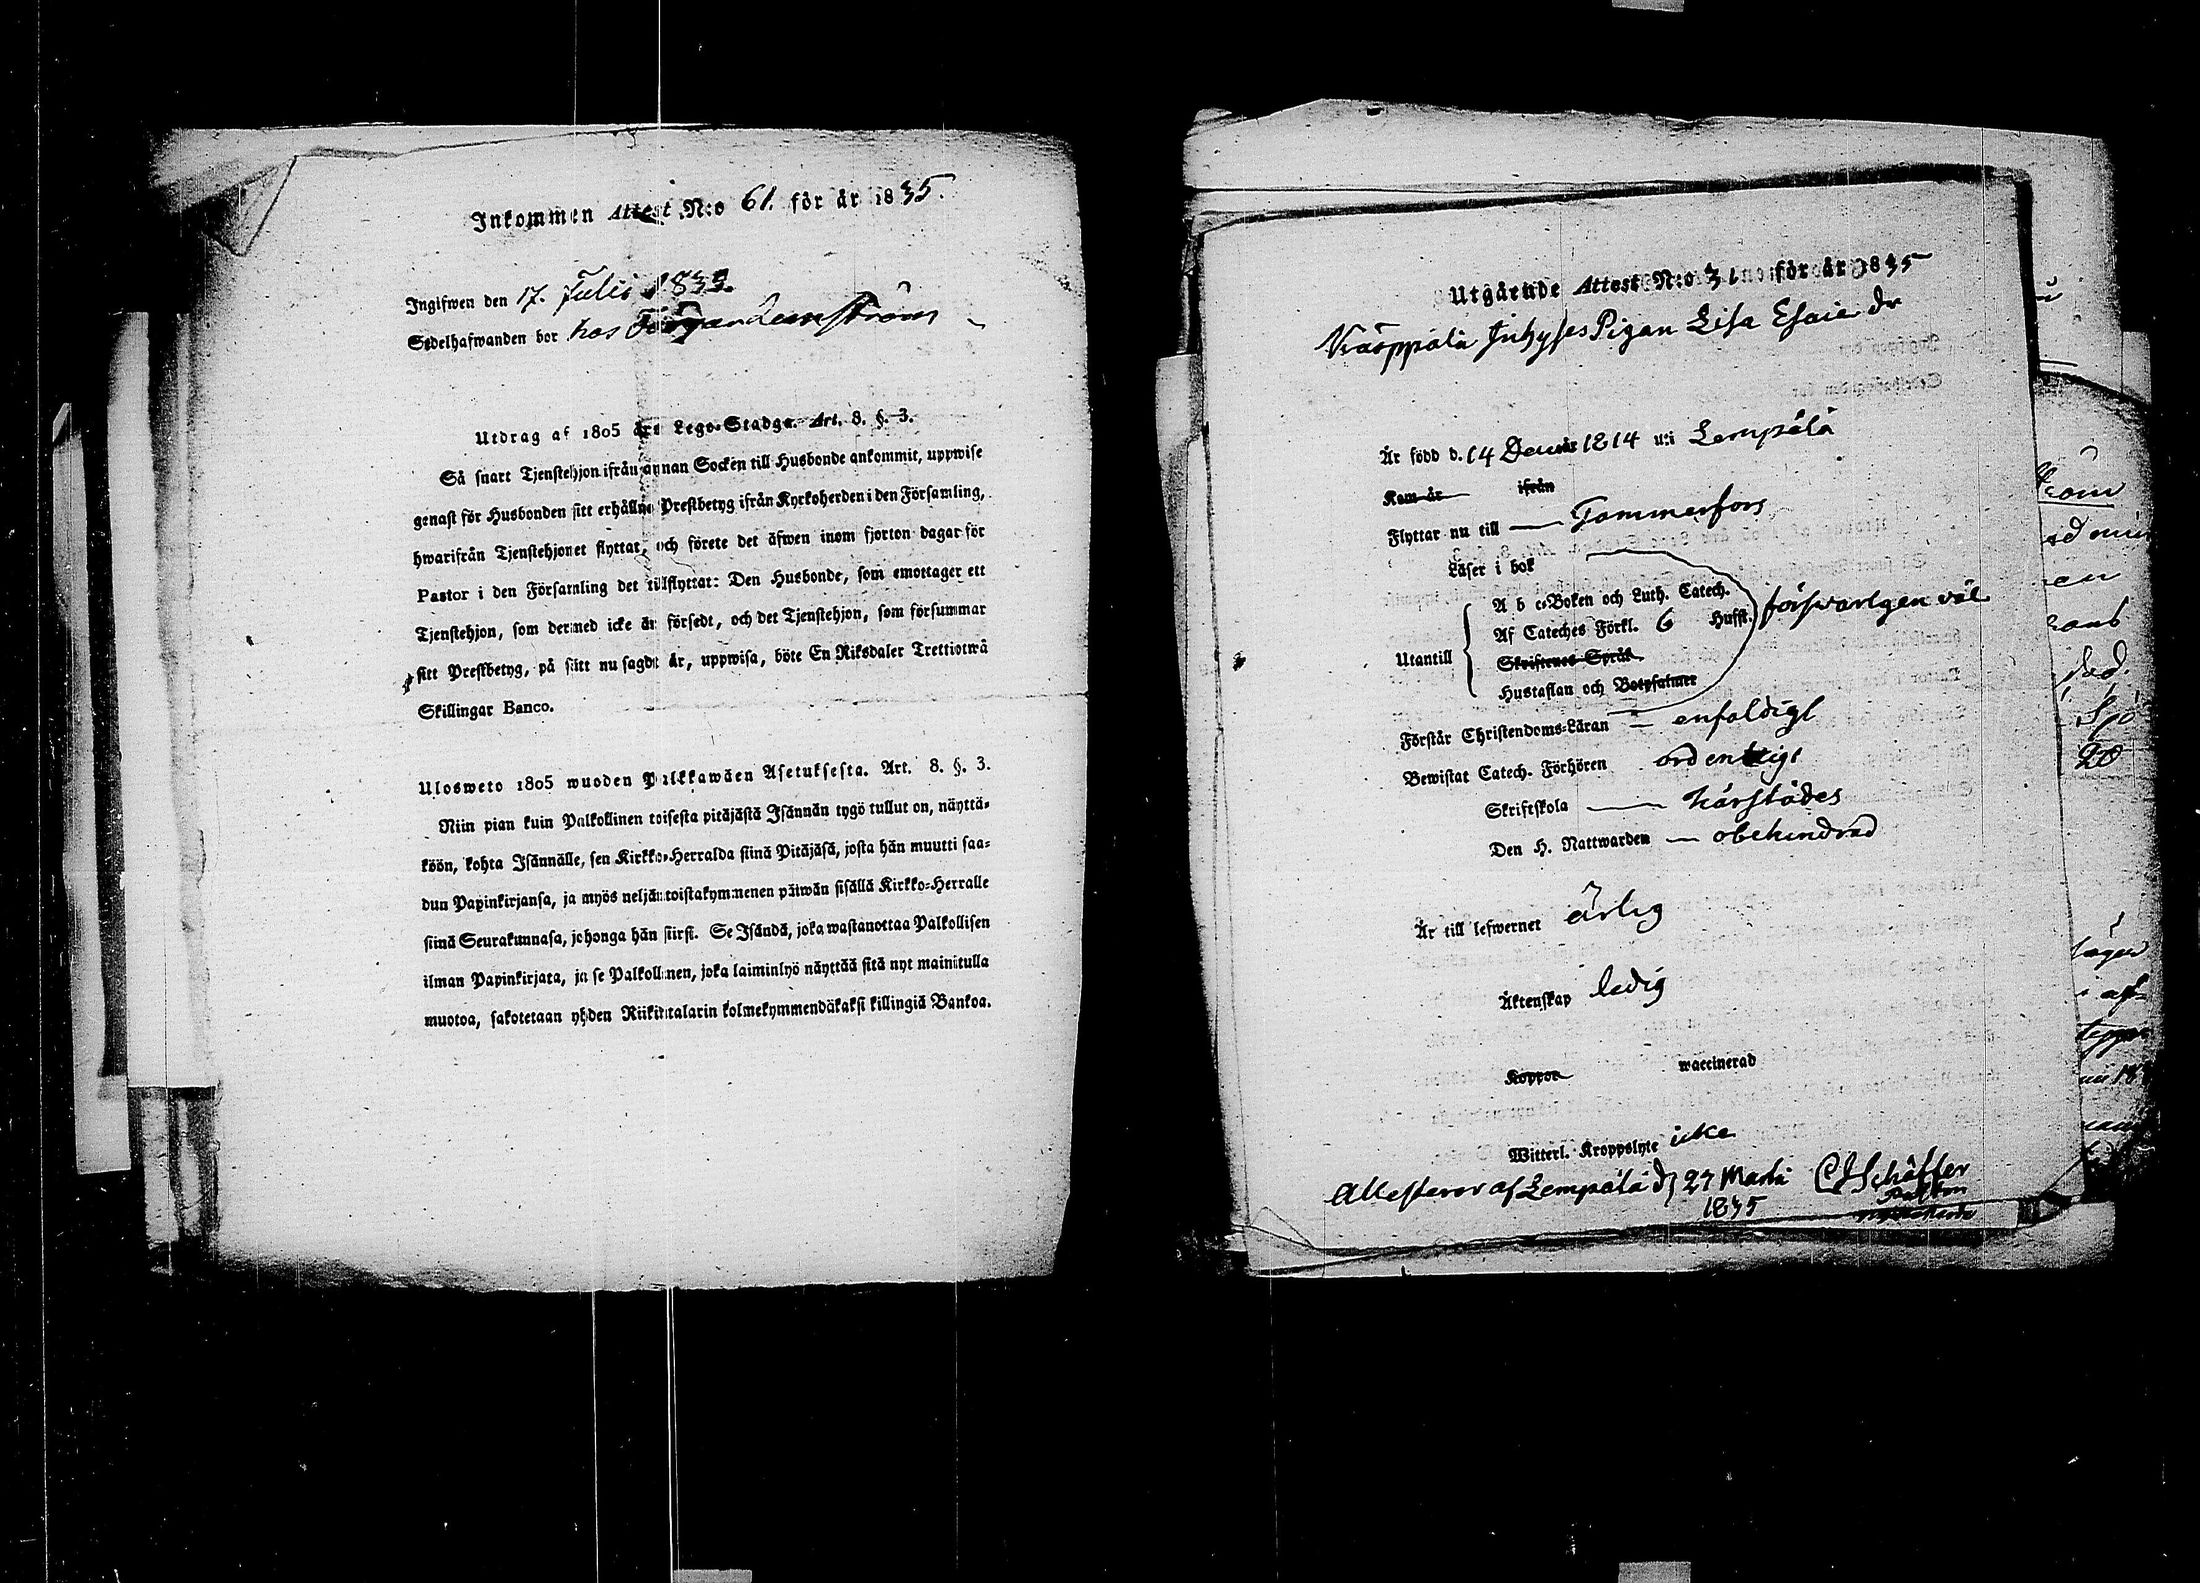 Inkommen Attest N:o 61. för år 1835.
Ingifwen den 17. Julii 1835.
Sedelhafwanden bor hos Färgar Lemström
Utdrag af 1805 års Lego-Stadga. Art. 8. §. 3.
Så snart Tjenstehjon ifrån annan Socken till Husbonde ankommit, uppwise
genast för Husbonden sitt erhållne Prestbetyg ifrån Kyrkoherden i den Församling,
hwarifrån Tjenstehjonet flyttat, och förete det äfwen inom fjorton dagar för
Pastor i den Församling det tillflyttat: Den Husbonde, som emottager ett
Tjenstehjon, som dermed icke är försedt, och det Tjenstehjon, som försummar
sitt Prestbetyg, på sätt nu sagdt är, uppwisa, böte En Riksdaler Trettiotwå
Skillingar Banco.
Ulosweto 1805 wuoden Palkkawäen Asetuksesta. Art. 8. §. 3.
Niin pian kuin Palkollinen toisesta pitäjästä Isännän tygö tullut on, näyttä-
köön, kohta Isännälle, sen Kirkko-Herralda siinä Pitäjäsä, josta hän muutti saa-
dun Papinkirjansa, ja myös neljäntoistakymmenen päiwän sisällä Kirkko-Herralle
siinä Seurakunnasa, johonga hän siirsi. Se Isändä, joka wastanottaa Palkollisen
ilman Papinkirjata, ja se Palkollinen, joka laiminlyö näyttää sitä nyt mainitulla
muotoa, sakotetaan yhden Riikintalarin kolmekymmendäkaksi killingiä Bankoa.
Utgående Attest N:o 31 för år 1835
Inhyses Pigan Lisa Esaiedr
Är född d. 14 Decembr 1814 uti Lempälä
Kom år ifrån
Flyttar nu till Tammerfors
Läser i bok
A b c-Boken och Luth. Catech.
Af Cateches Förkl. 6 Hufst. försvarligen väl
Utantill
Skriftenes Språk
Hustaflan och Botpsalmer
Förstår Christendoms-Läran enfaldigt
Bewistat Catech. Förhören ordentligt
Skriftskola härstädes
Den H. Nattwarden obehindrad
Är till lefwernet ärlig
Äktenskap ledig
Koppor waccinerad
Witterl. Kroppslyte icke
Attesterar af Lempälä d 27 Martii CJ Schäffer
1835 Pastor